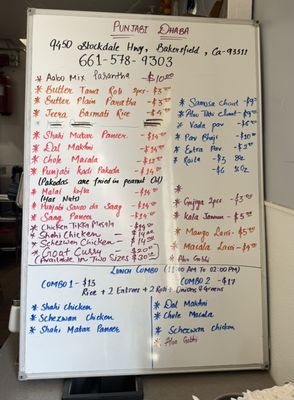 PUNJABI DHABA
9450 Stockdale Hwy, Bakersfield, Ca-93311
661-578-9303
* Aaloo Mix Parantha - $10.00
* Butter Tawa Roti
* Butter Plain Parantha - $3
* Jeera Basmati Rice - $4
* Shahi Matar Paneer - $14
* Dal Makhni - $14
* Chole Masala - $13
* Punjabi Kadi Pakoda - $14
(Pakodas are fried in peanut Oil)
* Malai kofta - $14
(Has Nuts)
* Punjabi Sarson da Saag - $14
* Saag Paneer - $14
* Chicken Tikka Masala
* Shahi Chicken - $14
* Schezwan Chicken - $14
* Goat Curry - $20.00
(Available in Two Sizes)
* Samosa Chaat - $9
* Aloo Tikki Chaat - $9
* Vada pav
* Pav Bhaji - $10
* Extra Pav - $2
* Raita - $5 8oz
16oz
*
* Gajjya 2pc - $3
* Kala Jamun - $5
* Mango Lassi - $5
* Masala Lassi - $4
* Aloo Gobhi
LUNCH COMBO (11:00 AM To 02:00 PM)
COMBO 1 - $15
COMBO 2 - $17
Rice + 2 Entrees + 2 Roti + Onions & Greens
* Shahi Chicken
* Schezwan Chicken
* Shahi Matar Paneer
* Dal Makhni
* Chole Masala
* Schezwan chicken
* Aloo Gobhi